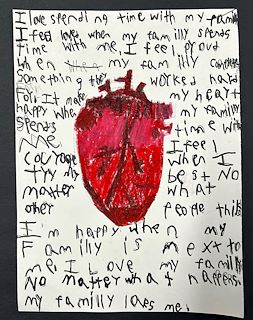 I love spending time with my family
I feel love when my familly spends
time with me, I feel proud
when my familly
something they worked hard
For. It makes my heart
happy when my familly
spends time with
me I feel
courage when I
try my best NO
matter what
other people think
I'm happy when my
Familly is next to
me. I Love my familly
No matter what happens.
my familly loves me.